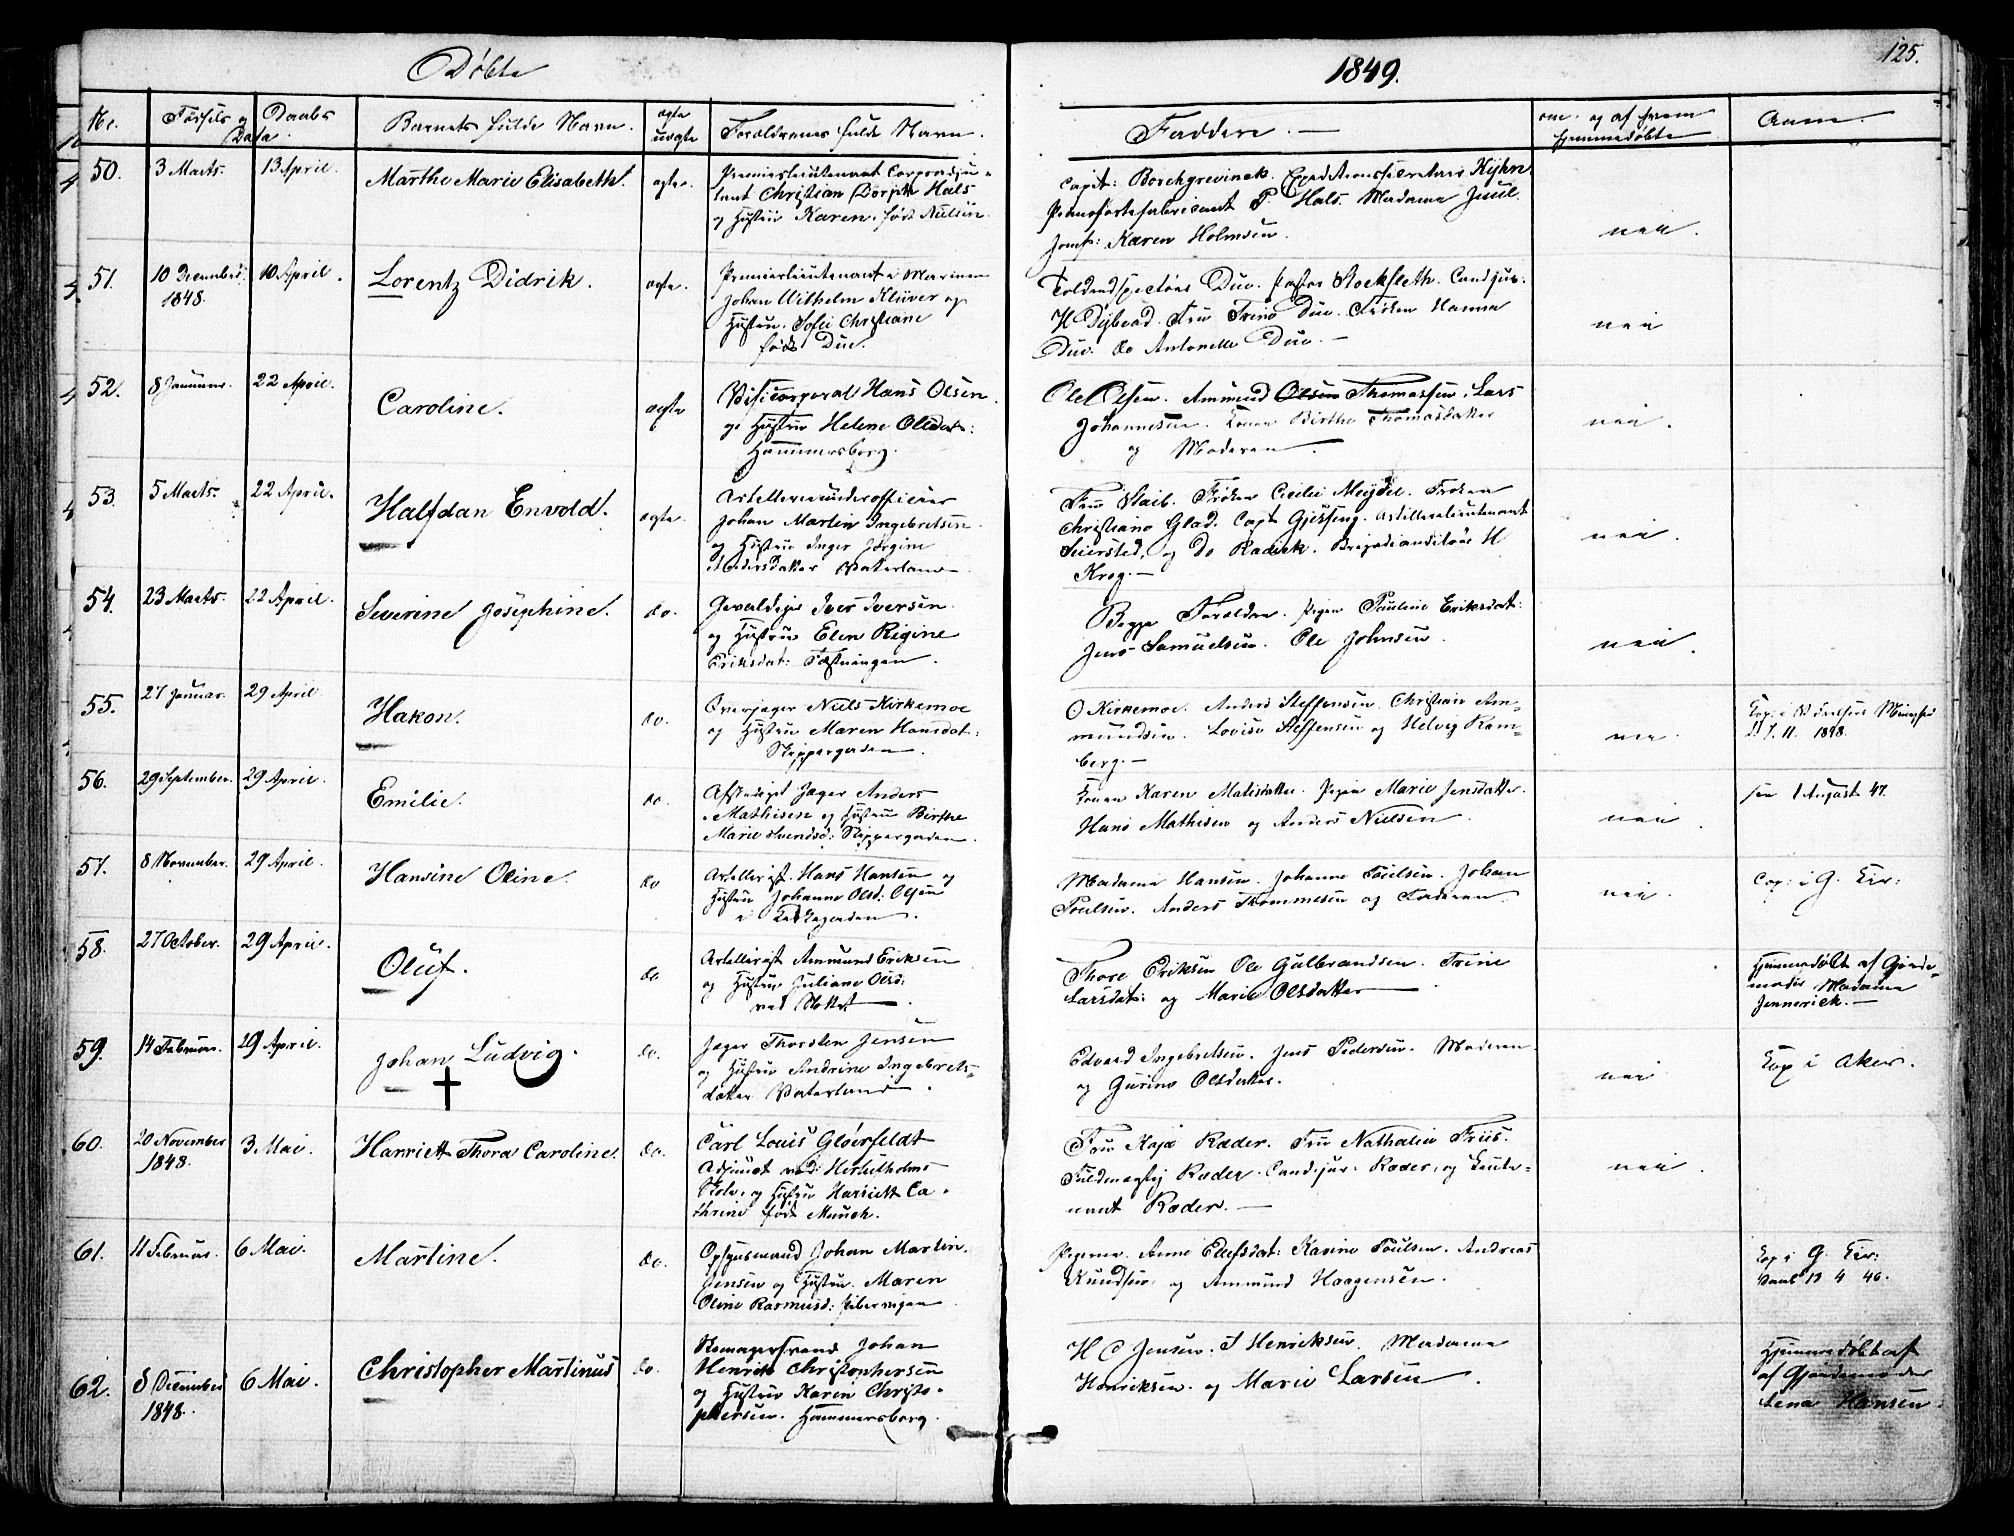 Døbte
1849.
125.
No.
Fødsels og Daabs
Data.
Barnets fulde Navn.
ægte
uægte
Forældrenes fulde Navn.
Faddere.
om og af hvem
hjemmedøbte
Anm.
50.
3 Marts.
13 April.
Marthe Marie Elisabeth.
ægte.
Premierlieutenant Corpsadju-
tant Christian Dorph Hals
og Hustru Karen født Nielsen.
Capit: Borchgrevinck. Expeditionssecretair Kyhn
Pianofortefabricant P. Hals. Madame Juul.
Jomf: Karen Holmsen.
nei.
51.
10 December
1848.
10 April.
Lorentz Didrik.
ægte.
Premierlieutenant i Marinen
Johan Wilhelm Klüver og
Hustru Sofie Christiane
født Due.
Toldinspecteur Due. Pastor Stockfleth. Cand jur.
H Dybvad. Fru Trine Due. Frøken Hanna
Due. do Antonette Due.
nei
52.
8 Januar.
22 April.
Caroline.
ægte
Visecorporal Hans Olsen
og Hustru Helene Olsdat:
Hammersborg.
Ole Olsen. Ammund Olsen Thomassen. Lars
Johannesen. Konen Birthe Thomasdatter
og Moderen
nei.
53.
5 Marts.
22 April.
Halfdan Envold.
ægte.
Artilleriunderofficeer
Johan Martin Ingebretsen
og Hustru Inger Jørgine
Pedersdatter Vaterland
Fru Staib. Frøken Cecilie Meydel. Frøken
Christiane Glad. Capt Gjessing. Artillerilieutenant
Seiersted, og do Radich. Brigadeauditør H
Krog.
nei.
54.
23 Marts.
22 April.
Severine Josephine.
do.
Gevaldiger Iver Iversen
og Hustru Elen Rigine
Eriksdat: Fæstningen.
Begge Forældre. Pigen Pauline Eriksdat:
Jens Samuelsen. Ole Johnsen.
nei.
55.
27 Januar.
29 April
Hakon.
do.
Overjæger Niels Kirkemoe
og Hustru Maren Hansdat:
Skippergaden.
O Kirkemoe. Anders Steffensen. Christian Am-
mundsen. Lovise Steffensen og Helvig Ram-
berg.
nei.
11. 1898.
56.
29 September.
29 April.
Emilie.
do.
Afskediget Jæger Anders
Mathisen og Hustru Birthe
Marie Svendsd: Skippergaden.
Konen Karen Matisdatter. Pigen Marie Jensdatter.
Hans Mathisen og Anders Nielsen.
nei.
1 August 47.
57.
8 November.
29 April.
Hansine Oline.
do
Artillerist Hans Hansen og
Hustru Johanne Olsd: Olsen
i
Madame Hansen. Johanne Poulsen. Johan
Poulsen. Anders Thommesen og Faderen.
nei.
Cop: i G. Kir:
58.
27 October.
29 April.
Oluf.
do
Artillerist Ammund Eriksen
og Hustru Juliane Olsd:
ved Slottet
Thore Eriksen Ole Gulbrandsen. Trine
Larsdat: og Marie Olsdatter
Hjemmedøbt af Gjorde-
moder Madame
Jennerick.
59.
14 Februar.
29 April.
Johan Ludvig.
do.
Jæger Thorsten Jensen
og Hustru Andrine Ingebrets-
datter Vaterland.
Edvard Ingebretsen. Jens Pedersen. Moderen
og Gurine Olsdatter.
nei
Cop i Aker.
60.
20 November
1848.
3 Mai.
Harriett Thora Caroline.
do.
Carl Louis Gløerfeldt
Adjunct ved Hertelholms
Skole, og Hustru Harriett Ca-
thrine født Munch.
Fru Kaja Ræder. Fru Nathalie Friis.
Fuldmægtig Ræder. Cand: jur: Ræder, og Leute-
nant Ræder.
nei.
61.
11 Februar.
6 Mai.
Martine.
do.
Opsynsmand Johan Martin
Jensen og Hustru Maren
Oline Rasmusd: Pibervigen
Pigerne Anne Ellefsdat: Karine Poulsen. Andreas
Knudsen og Ammund Haagensen.
Cop i G. Kir:
13 4 46.
62.
8 December
1848.
6 Mai.
Christopher Martinus
do.
Skomagersvend Johan
Henrik Christophersen
og Hustru Karen Christo-
phersen. Hammersborg.
H C Jensen. J Henriksen. Madame
Henriksen. og Marie Larsen.
Hjemmedøbt af
af Gjordemoder
Lena Hansen.